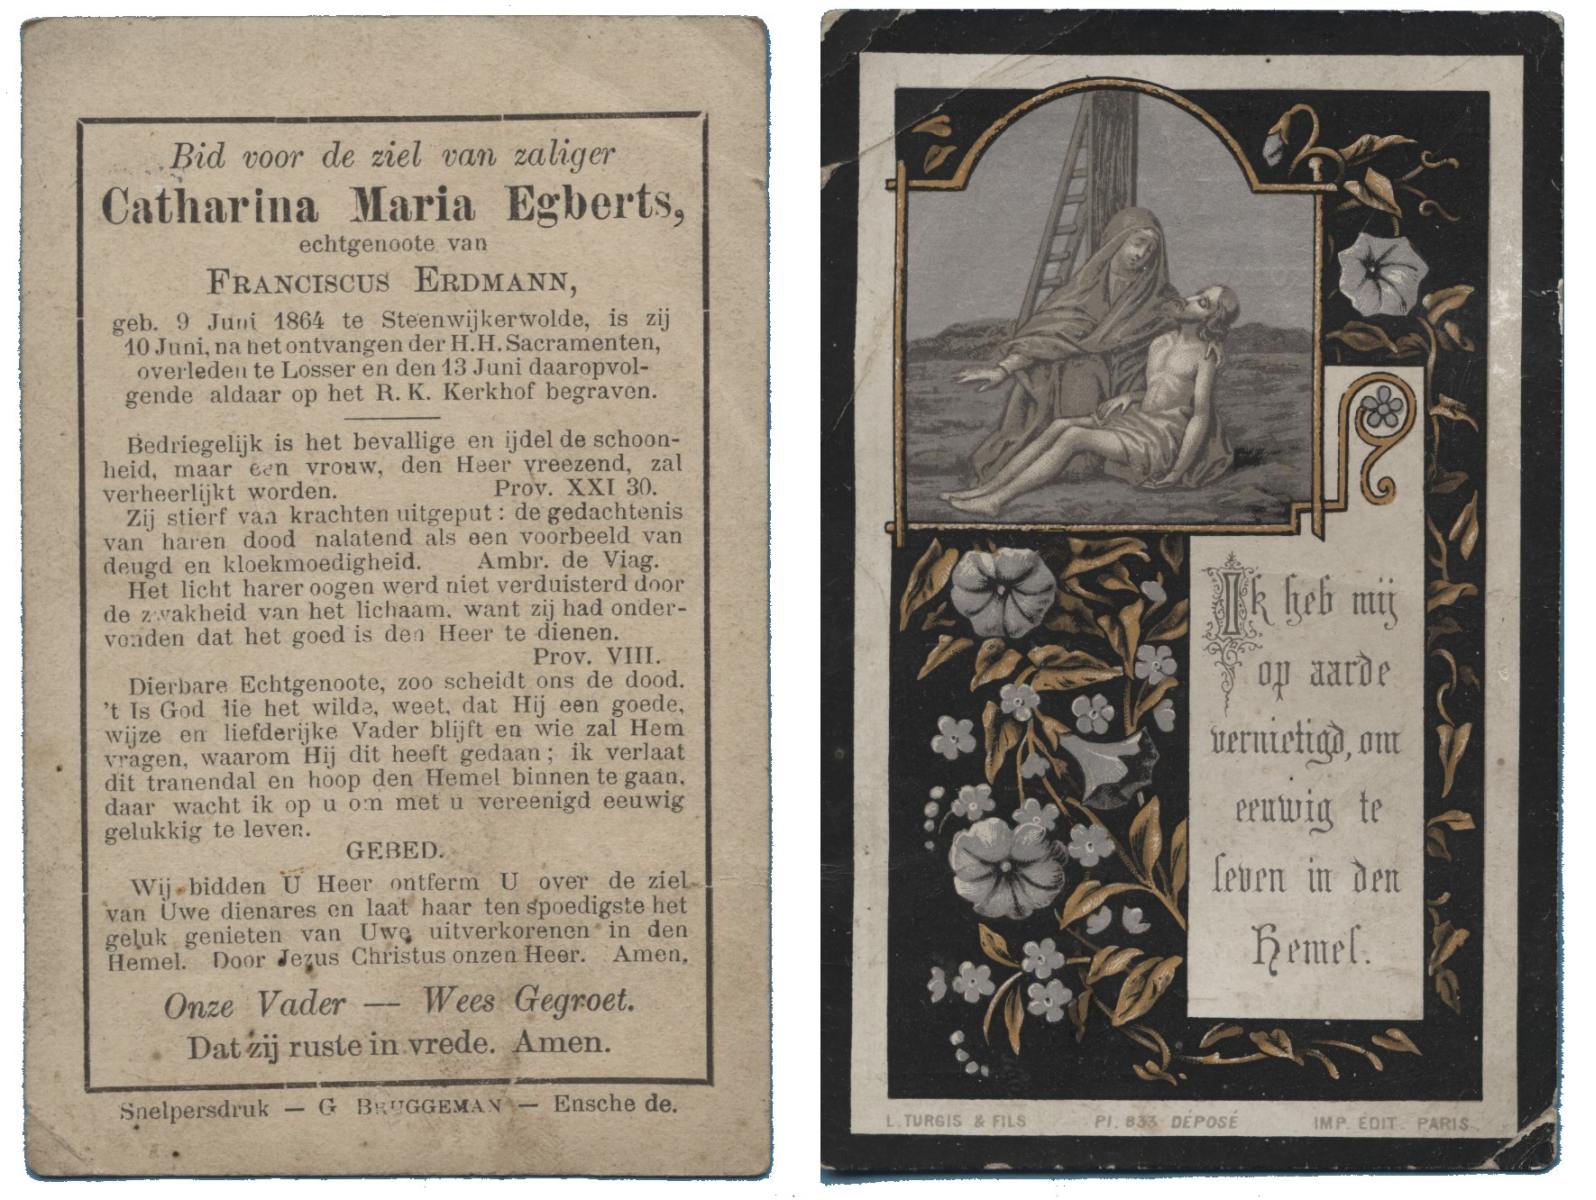 Bid voor de ziel van zaliger
Catharina Maria Egberts,
echtgenoote van
FRANCISCUS ERDMANN,
geb. 9 Juni 1864 te Steenwijkerwolde, is zij
10 Juni, na het ontvangen der H.H. Sacramenten,
overleden te Losser en den 13 Juni daaropvol-
gende aldaar op het R. K. Kerkhof begraven.
Bedriegelijk is het bevallige en ijdel de schoon-
heid, maar een vrouw, den Heer vreezend, zal
verheerlijkt worden. Prov. XXI 30.
Zij stierf van krachten uitgeput: de gedachtenis
van haren dood nalatend als een voorbeeld van
deugd en kloekmoedigheid. Ambr. de Viag.
Het licht harer oogen werd niet verduisterd door
de zwakheid van het lichaam, want zij had onder-
vonden dat het goed is den Heer te dienen.
Prov. VIII.
Dierbare Echtgenoote, zoo scheidt ons de dood.
't Is God die het wilde, weet, dat Hij een goede,
wijze en liefderijke Vader blijft en wie zal Hem
vragen, waarom Hij dit heeft gedaan; ik verlaat
dit tranendal en hoop den Hemel binnen te gaan,
daar wacht ik op u om met u vereenigd eeuwig
gelukkig te leven.
GEBED.
Wij bidden U Heer ontferm U over de ziel
van Uwe dienares en laat haar ten spoedigste het
geluk genieten van Uwe uitverkorenen in den
Hemel. Door Jezus Christus onzen Heer. Amen.
Onze Vader — Wees Gegroet.
Dat zij ruste in vrede. Amen.
Snelpersdruk — G BRUGGEMAN — Enschede.
Ik heb mij
op aarde
vernietigd, om
eeuwig te
leven in den
Hemel.
L. TURGIS & FILS Pl. 833 DÉPOSÉ IMP. EDIT. PARIS.